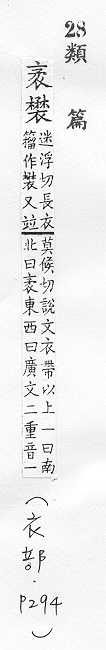 28
類篇
袤
迷浮切長衣
籀作 又竝
莫候切說文衣帶以上一曰南
北曰袤東西曰廣文二重音一
(衣部.P294)